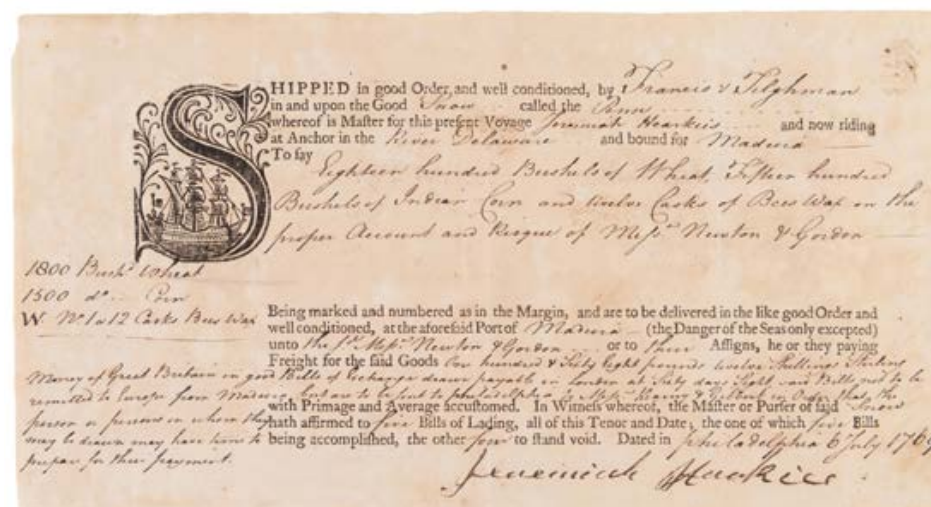 SHIPPED in good Order, and well conditioned, by Francis & Tilghman
in and upon the Good Snow called the Penn
whereof is Master for this present Voyage Jeremiah Harkins and now riding
at Anchor in the River Delaware and bound for Madeira
To say
Eighteen hundred Bushels of Wheat, Fifteen hundred
Bushels of Indian Corn and twelve Casks of Bees Wax on the
proper Account and Risque of Messrs Newton & Gordon
1800 Bushs Wheat
1500 do Corn
W No 1 a 12 Casks Bees Wax
Being marked and numbered as in the Margin, and are to be delivered in the like good Order and
well conditioned, at the aforesaid Port of Madeira (the Danger of the Seas only excepted)
unto the sd Messrs Newton & Gordon or to their Assigns, he or they paying
Freight for the said Goods One hundred & Sixty Eight pounds twelve Shillings Sterling
Money of Great Britain in good Bills of Exchange drawn payable in London at Sixty days Sight said Bills not to be
remitted to Europe from Madeira but are to be sent to Philadelphia to Messrs & in Order that the
person or persons on whom they
may be drawn may have time to
prepare for their payment.
with Primage and Average accustomed. In Witness whereof, the Master or Purser of said Snow
hath affirmed to five Bills of Lading, all of this Tenor and Date; the one of which five Bills
being accomplished, the other four to stand void. Dated in Philadelphia 6 July 1769
Jeremiah Harkins